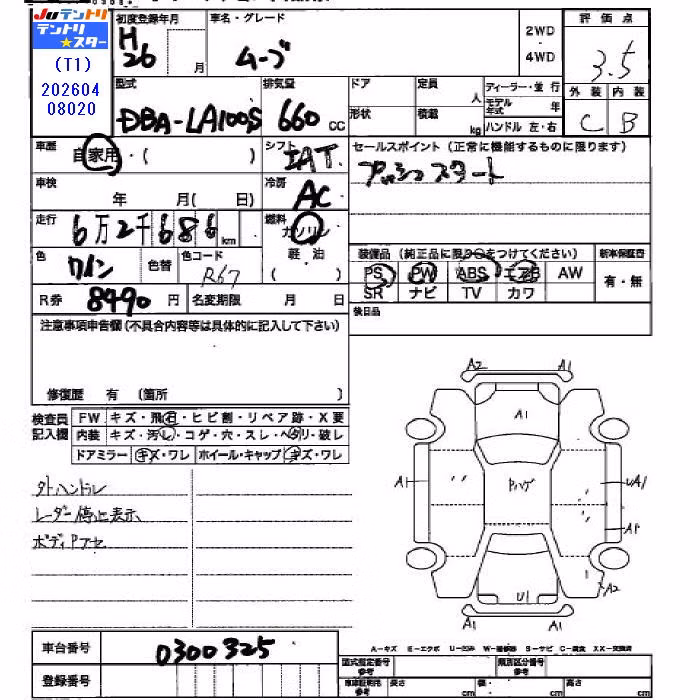 JUテントリ
テントリ★スター
(T1)
202604
08020
初度登録年月
H26 月
車名・グレード
ムーブ
2WD・4WD
評価点
3.5
外装 内装
C B
型式
DBA-LA100S
排気量
660 CC
ドア
形状
定員 人
積載 kg
ディーラー・並行
モデル年式 年
ハンドル 左・右
車歴
自家用・( )
シフト
IAT
セールスポイント (正常に機能するものに限ります)
プッシュスタート
車検
年 月( 日)
冷房
AC
走行
6万2千686 km
燃料
ガソリン
軽・油
( )
色
ワイン
色替
色コード
R67
装備品 (純正品に限り○をつけてください)
PS PW ABS エアB AW
SR ナビ TV カワ
新車保証書
有・無
R券 8490 円
名変期限 月 日
後日品
注意事項申告欄(不具合内容等は具体的に記入して下さい)
修復歴 有 〔箇所 〕
検査員記入欄
FW キズ・飛石・ヒビ割・リペア跡・X要
内装 キズ・汚レ・コゲ・穴・スレ・ヘタリ・破レ
ドアミラー キズ・ワレ ホイール・キャップ キズ・ワレ
外ハンドル
レーダー停止表示
ボディPアセ
A2 A1
A1
A1
Pハゲ
UA1
A1
A2
U1
A1 A1
車台番号 0300325
登録番号
A-キズ E-エクボ U-凹み W-補修跡 S-サビ C-腐食 XX-交換済
型式指定番号参考
類別区分番号参考
車庫証明用参考 長さ cm 幅 cm 高さ cm